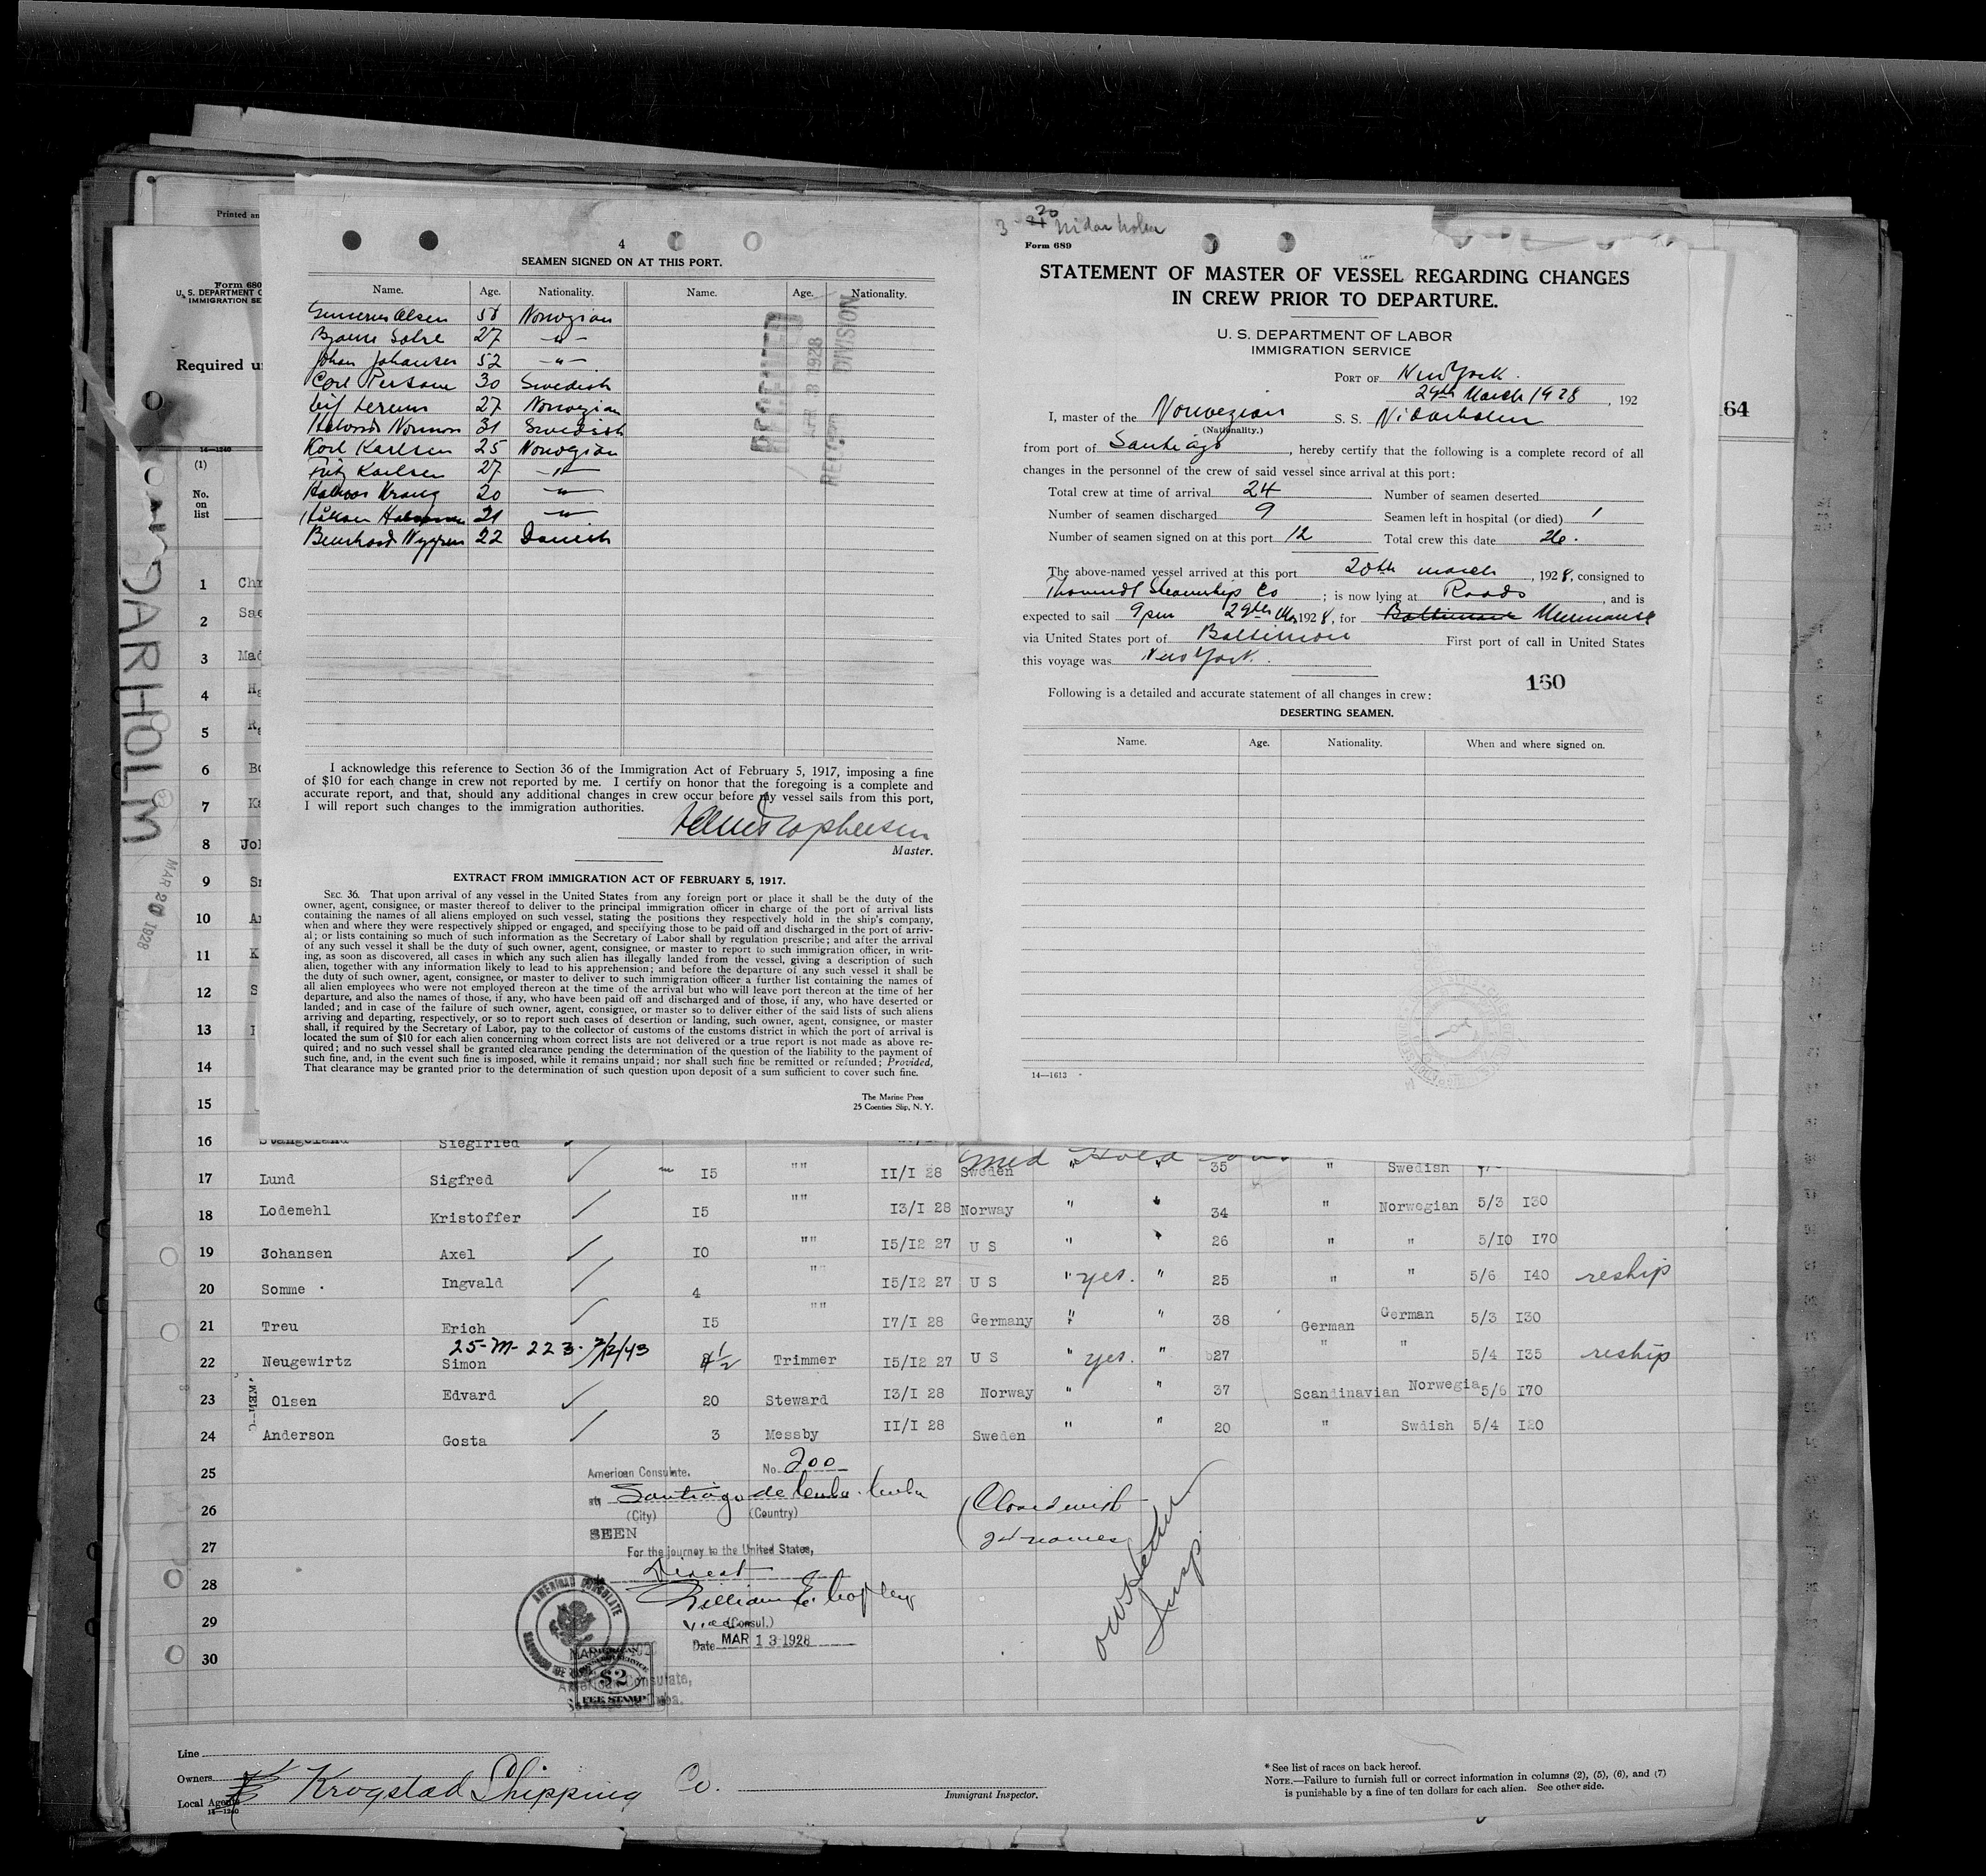 Printed an
Form 680
U. S. DEPARTMENT O
IMMIGRATION SE
Required u
14—1240
(1)
No.
on
list
DARHOLM
MAR 20 1928
4
SEAMEN SIGNED ON AT THIS PORT.
Name. Age. Nationality. Name. Age. Nationality.
Olsen Norwegian
27 —"—
Johan Johansen 52 —"—
Carl Persson 30 Swedish
Leif 27 Norwegian
31 Swedish
Karl Karlsen 25 Norwegian
Karlsen 27 —"—
20 —"—
21 —"—
22 Danish
RECEIVED
1928
DIVISION
I acknowledge this reference to Section 36 of the Immigration Act of February 5, 1917, imposing a fine
of $10 for each change in crew not reported by me. I certify on honor that the foregoing is a complete and
accurate report, and that, should any additional changes in crew occur before my vessel sails from this port,
I will report such changes to the immigration authorities.
Master.
EXTRACT FROM IMMIGRATION ACT OF FEBRUARY 5, 1917.
SEC. 36. That upon arrival of any vessel in the United States from any foreign port or place it shall be the duty of the
owner, agent, consignee, or master thereof to deliver to the principal immigration officer in charge of the port of arrival lists
containing the names of all aliens employed on such vessel, stating the positions they respectively hold in the ship's company,
when and where they were respectively shipped or engaged, and specifying those to be paid off and discharged in the port of arriv-
al; or lists containing so much of such information as the Secretary of Labor shall by regulation prescribe; and after the arrival
of any such vessel it shall be the duty of such owner, agent, consignee, or master to report to such immigration officer, in writ-
ing, as soon as discovered, all cases in which any such alien has illegally landed from the vessel, giving a description of such
alien, together with any information likely to lead to his apprehension; and before the departure of any such vessel it shall be
the duty of such owner, agent, consignee, or master to deliver to such immigration officer a further list containing the names of
all alien employees who were not employed thereon at the time of the arrival but who will leave port thereon at the time of her
departure, and also the names of those, if any, who have been paid off and discharged and of those, if any, who have deserted or
landed; and in case of the failure of such owner, agent, consignee, or master so to deliver either of the said lists of such aliens
arriving and departing, respectively, or so to report such cases of desertion or landing, such owner, agent, consignee, or master
shall, if required by the Secretary of Labor, pay to the collector of customs of the customs district in which the port of arrival is
located the sum of $10 for each alien concerning whom correct lists are not delivered or a true report is not made as above re-
quired; and no such vessel shall be granted clearance pending the determination of the question of the liability to the payment of
such fine, and, in the event such fine is imposed, while it remains unpaid; nor shall such fine be remitted or refunded; Provided,
That clearance may be granted prior to the determination of such question upon deposit of a sum sufficient to cover such fine.
The Marine Press
25 Coenties Slip, N. Y.
3 20 Nidarholm
Form 689
STATEMENT OF MASTER OF VESSEL REGARDING CHANGES
IN CREW PRIOR TO DEPARTURE.
U. S. DEPARTMENT OF LABOR
IMMIGRATION SERVICE
PORT OF New York.
29th March 1928, 192
I, master of the Norwegian S. S. Nidarholm
(Nationality.)
from port of Santiago, hereby certify that the following is a complete record of all
changes in the personnel of the crew of said vessel since arrival at this port:
Total crew at time of arrival 24 Number of seamen deserted
Number of seamen discharged 9 Seamen left in hospital (or died) 1
Number of seamen signed on at this port 12 Total crew this date 26.
The above-named vessel arrived at this port 20th march, 1928, consigned to
Steamship Co; is now lying at Roads, and is
expected to sail 9pm 29th 1928, for Baltimore
via United States port of Baltimore First port of call in United States
this voyage was New York.
160
Following is a detailed and accurate statement of all changes in crew:
DESERTING SEAMEN.
Name. Age. Nationality. When and where signed on.
14—1613
64
1 Chr
2 Sae
3 Mad
4 Ha
5 Ra
6 Bo
7 Ka
8 Joh
9 Sm
10 An
11 K
12 S
13 I
14
15
16 Stangeland Siegfried
17 Lund Sigfred I5 "" II/I 28 Sweden " " 35 " Swedish
18 Lodemehl Kristoffer I5 I3/I 28 Norway " " 34 " Norwegian 5/3 I30
19 Johansen Axel IO "" I5/I2 27 U S " " 26 " " 5/IO I70
20 Somme Ingvald 4 "" I5/I2 27 U S " yes. " 25 " " 5/6 I40 reship
21 Treu Erich I5 "" I7/I 28 Germany " " 38 German German 5/3 I30
25-M-223. 2/12/43
22 Neugewirtz Simon 4 1/2 Trimmer I5/I2 27 U S " yes. " 27 " " 5/4 I35 reship
23 Olsen Edvard 20 Steward I3/I 28 Norway " " 37 Scandinavian Norwegia 5/6 I70
24 Anderson Gosta 3 Messby II/I 28 Sweden " " 20 " Swdish 5/4 I20
25
26
27
28
29
30
American Consulate. No. 200
at Santiago de Cuba. Cuba
(City) (Country)
SEEN
For the journey to the United States,
Direct
William
Vice (Consul.)
Date MAR 13 1928
AMERICAN CONSULATE
SANTIAGO DE CUBA
$2
FEE STAMP
American Consulate,
Cuba.
(Closed with
24 names
Insp.
Line
Owners
Local Agents
Krogstad Shipping Co.
14—1240
Immigrant Inspector.
* See list of races on back hereof.
NOTE.—Failure to furnish full or correct information in columns (2), (5), (6), and (7)
is punishable by a fine of ten dollars for each alien. See other side.